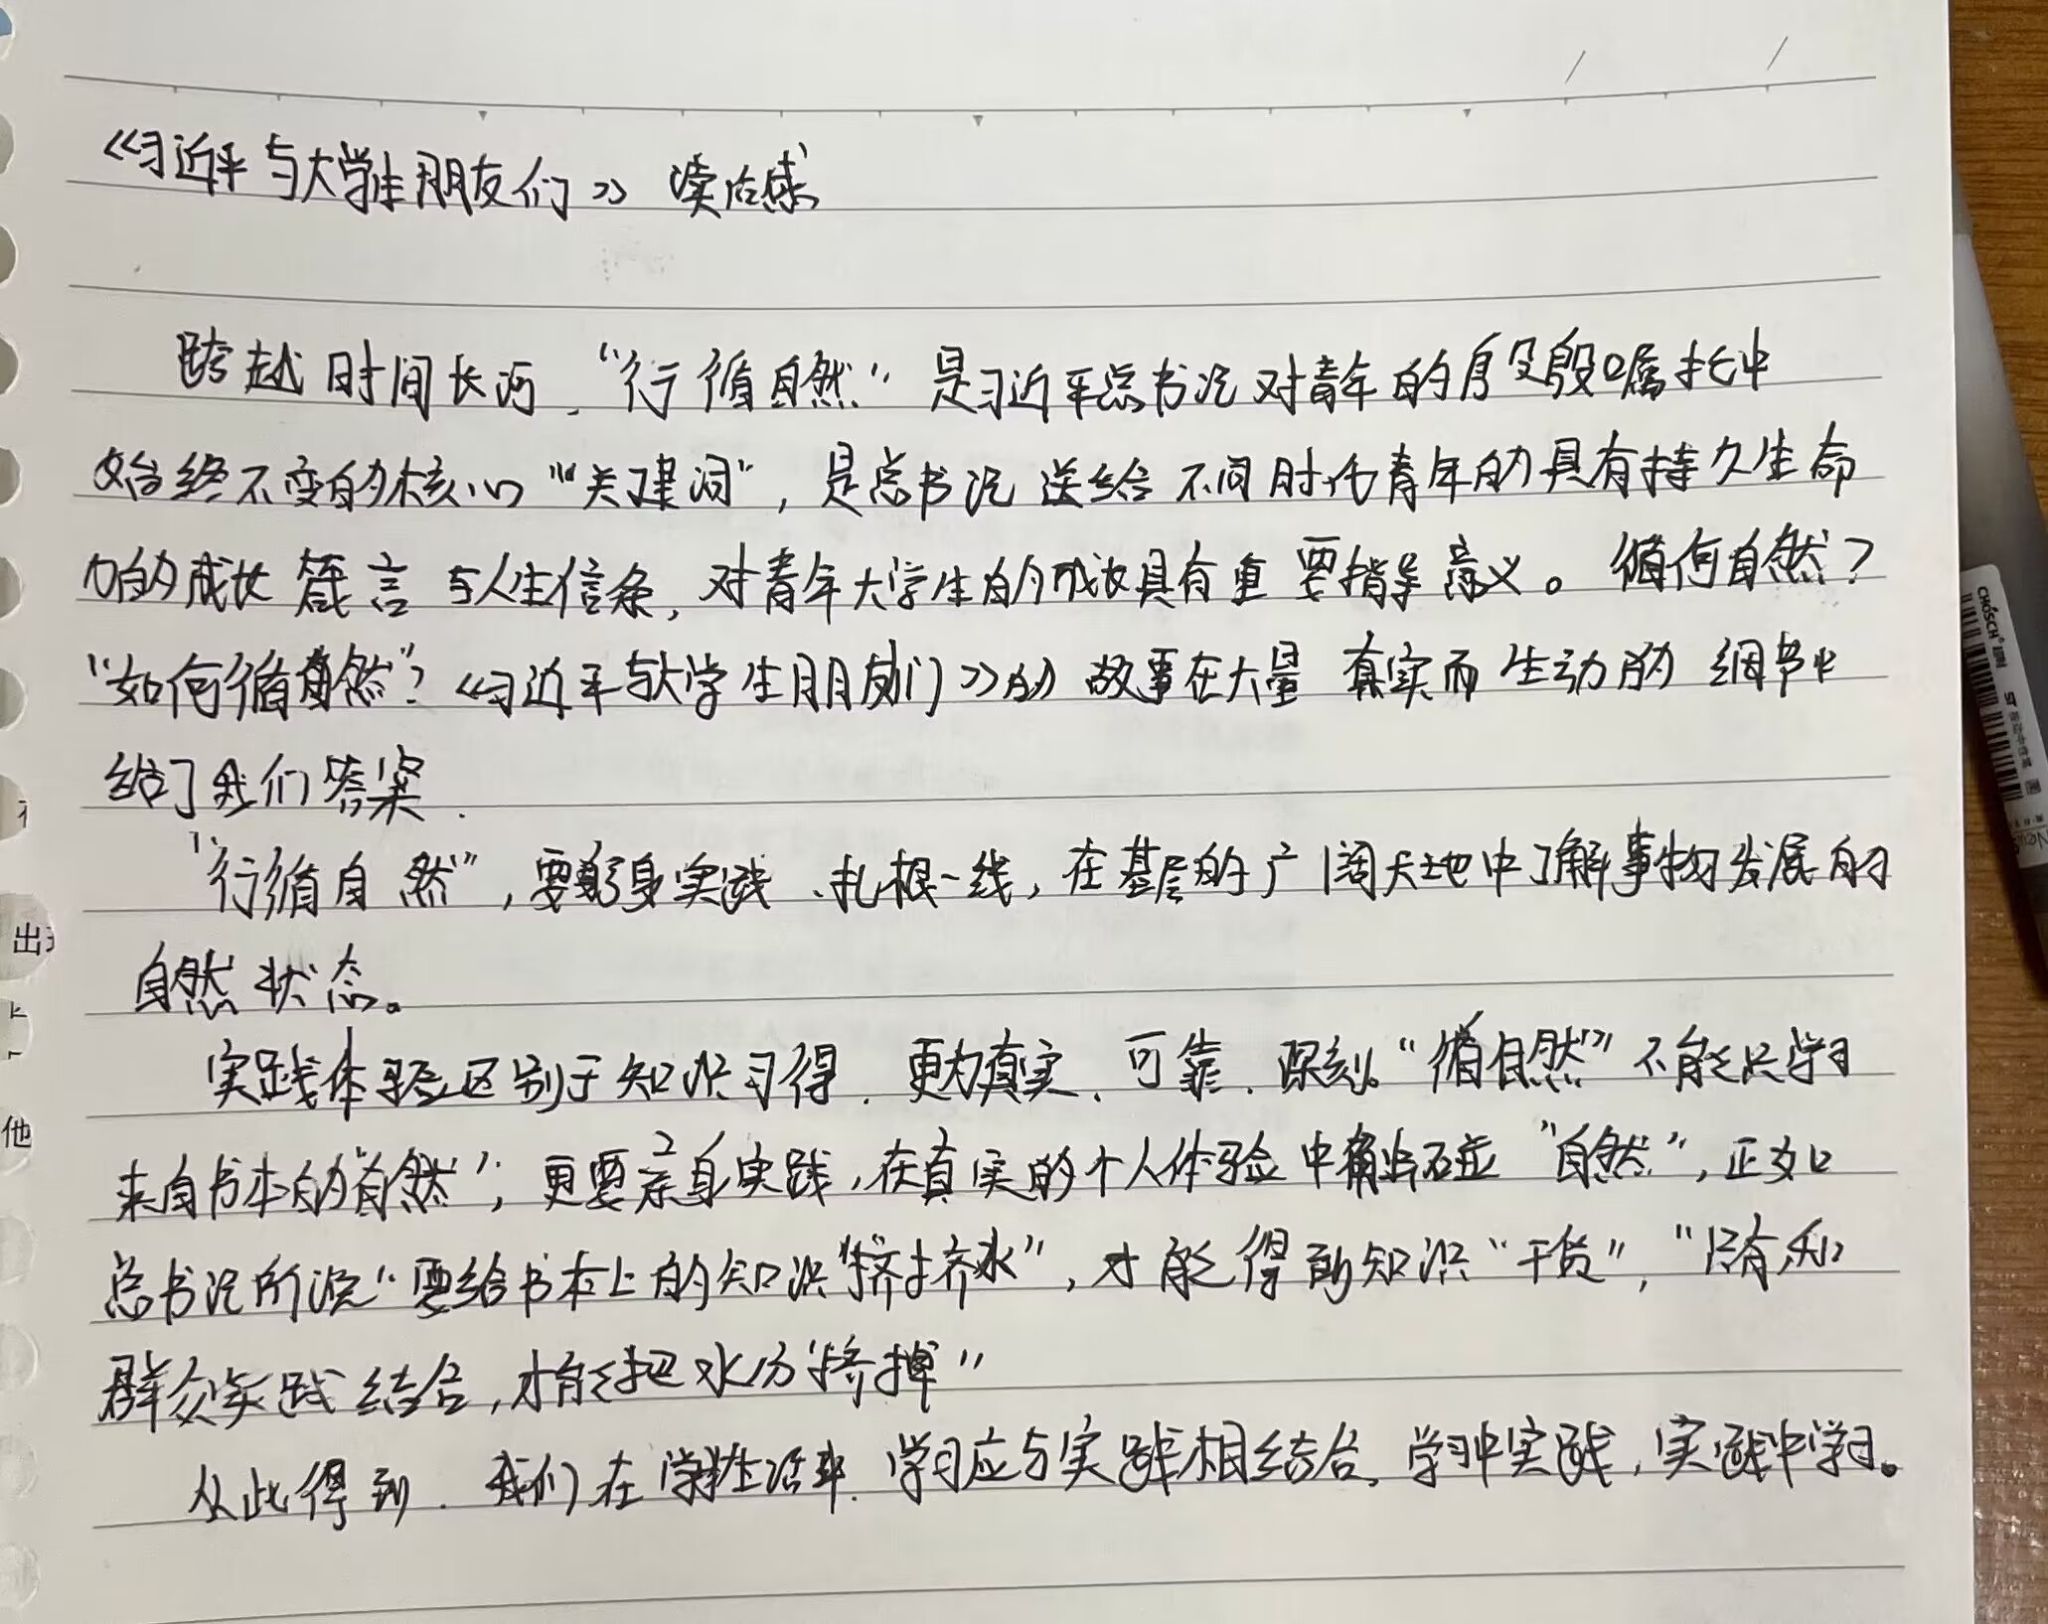 《习近平与大学生朋友们》读后感
跨越时间长河，“行循自然”是习近平总书记对青年的殷殷嘱托中
始终不变的核心“关键词”，是总书记送给不同时代青年的具有持久生命
力的成长箴言与人生信条，对青年大学生的成长具有重要指导意义。循何自然？
“如何循自然”？《习近平与大学生朋友们》的故事在大量真实而生动的细节中
给了我们答案.
“行循自然”，要躬身实践、扎根一线，在基层的广阔大地中了解事物发展的
自然状态。
实践体验区别于知识习得，更为真实、可靠、深刻。“循自然”不能只学习
来自书本的“自然”，更要亲身实践，在真实的个人体验中触碰“自然”，正如
总书记所说“要给书本上的知识“挤挤水”，才能得到知识“干货”，“只有和
群众实践结合，才能把水分挤掉”
从此得到，我们在学生活中，学习应与实践相结合，学习中实践，实践中学习。
CHOSCH
出
他